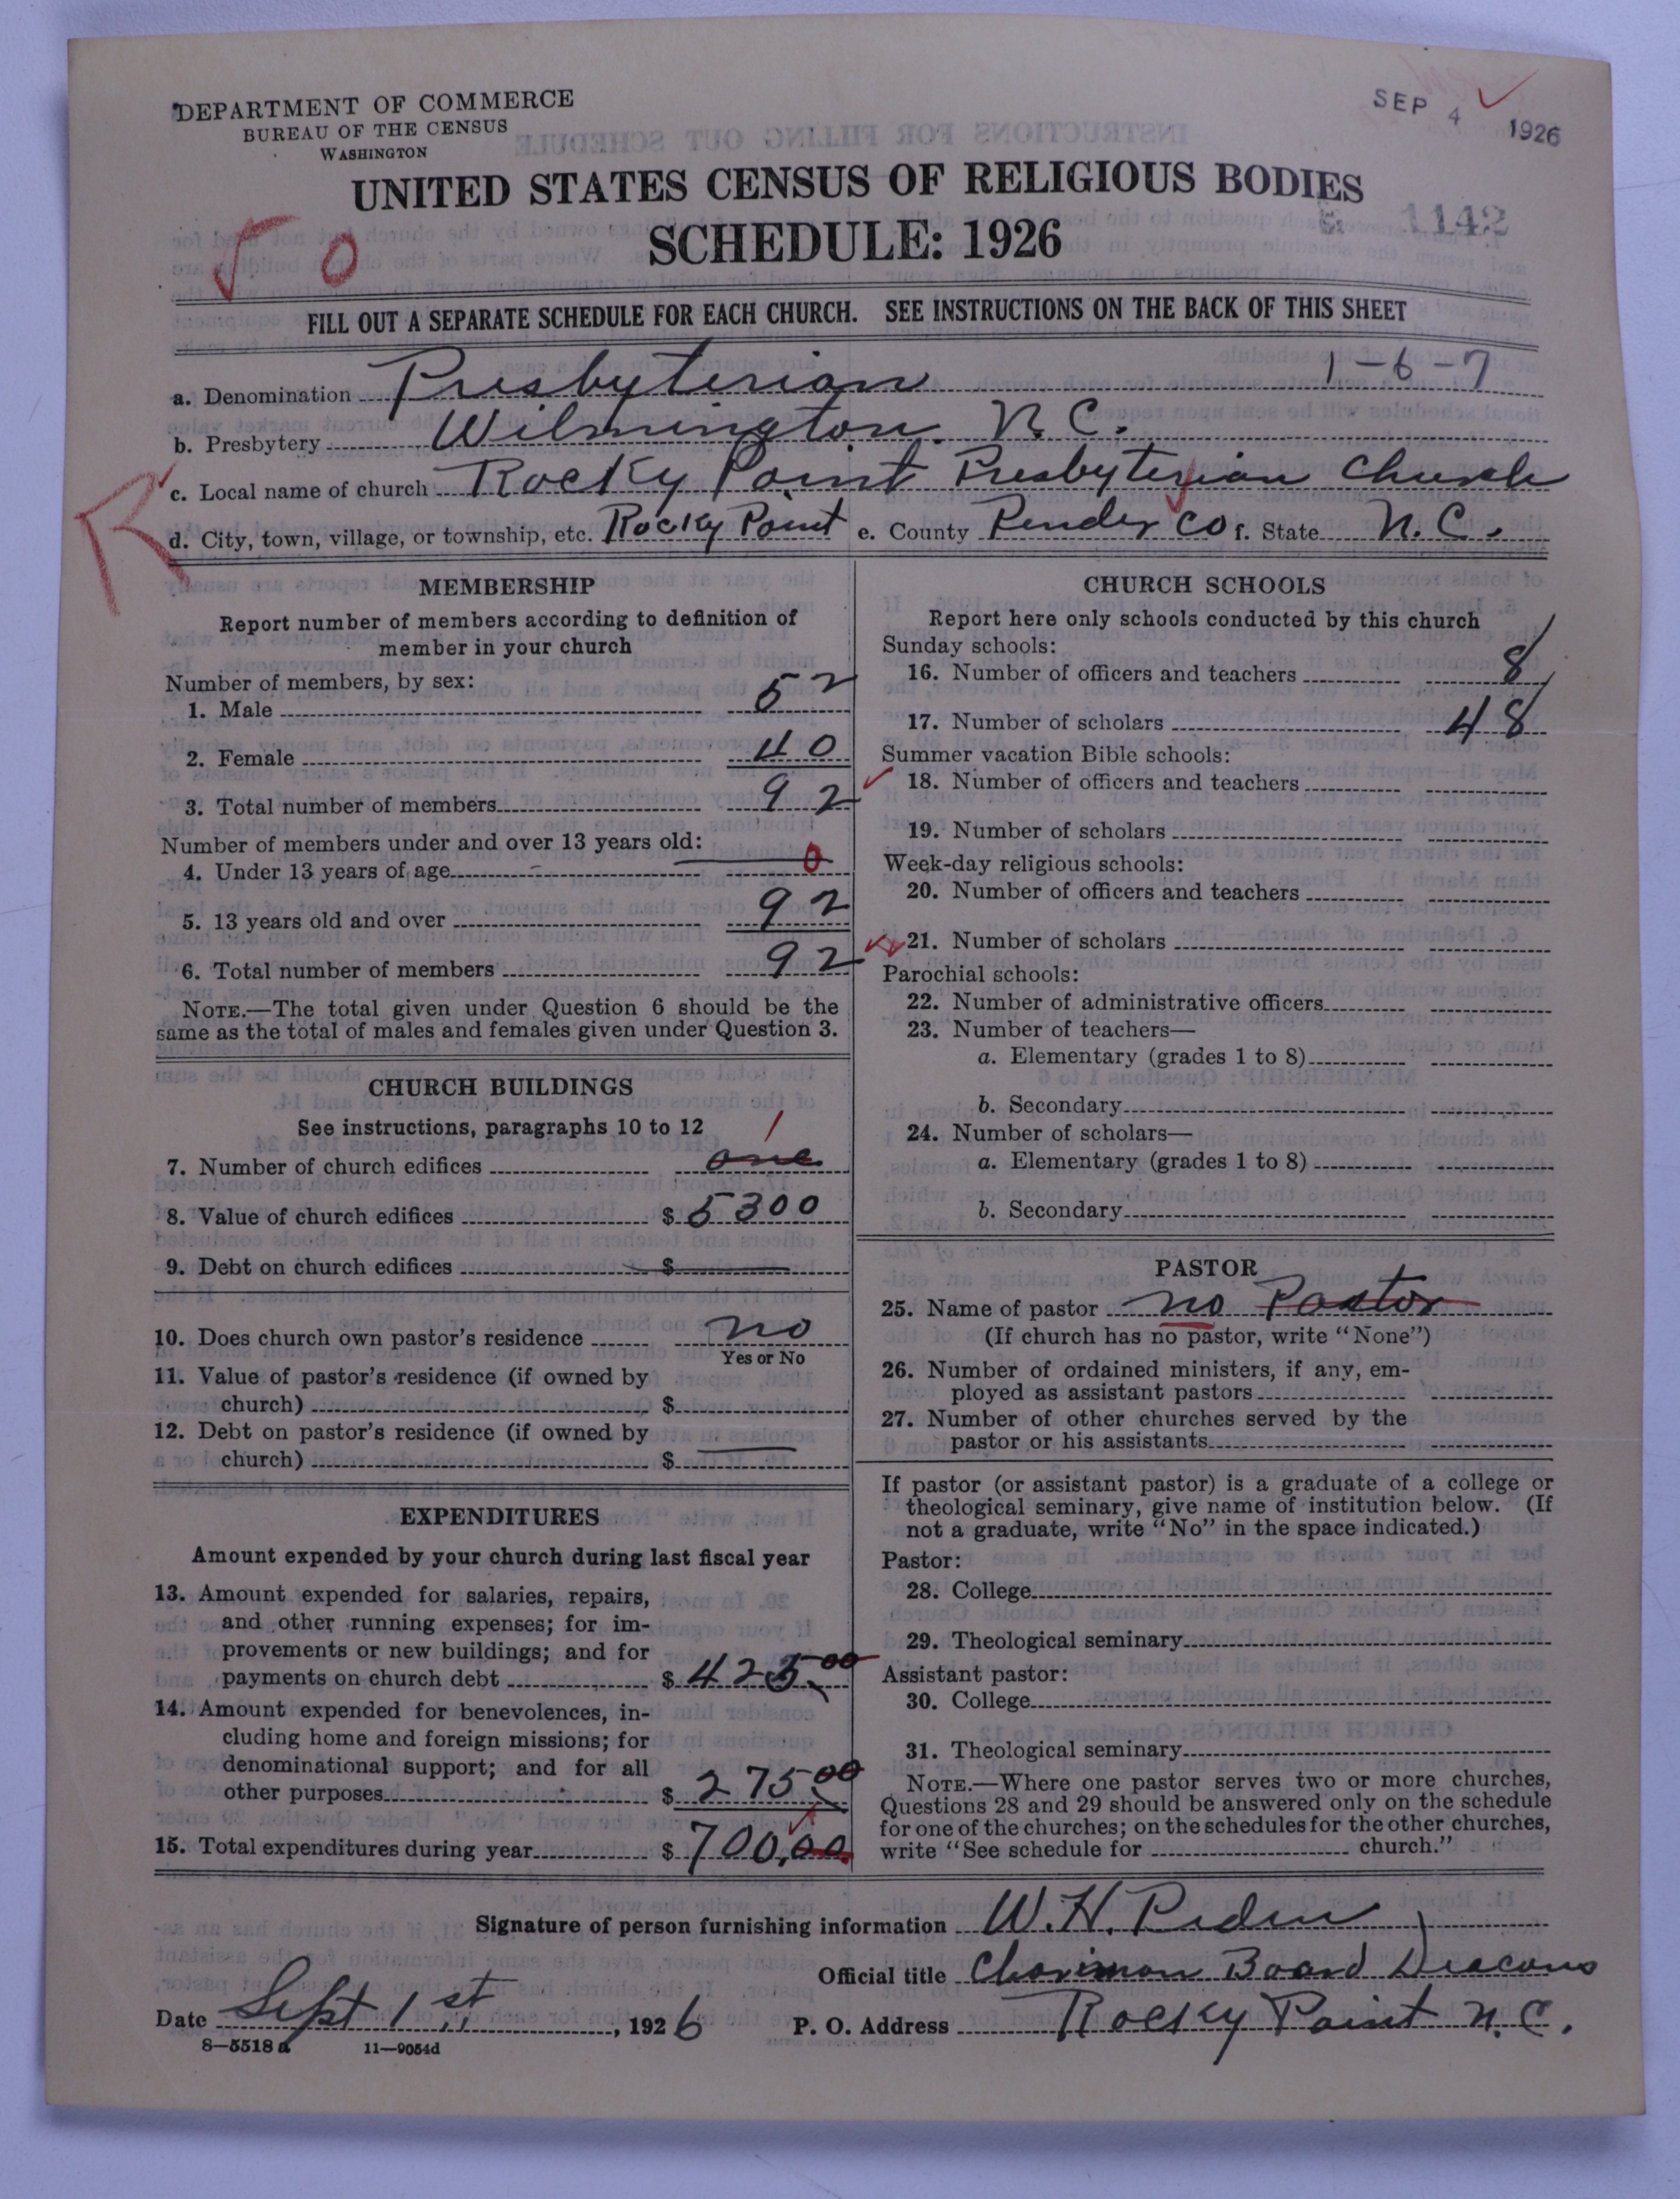 DEPARTMENT OF COMMERCE
BUREAU OF THE CENSUS
WASHINGTON
SEP 4 1926
UNITED STATES CENSUS OF RELIGIOUS BODIES
SCHEDULE: 1926
1142
√ 0
FILL OUT A SEPARATE SCHEDULE FOR EACH CHURCH. SEE INSTRUCTIONS ON THE BACK OF THIS SHEET
a. Denomination Presbyterian 1-6-7
b. Presbytery Wilmington. N.C.
R
c. Local name of church Rocky Point Presbyterian Church
d. City, town, village, or township, etc. Rocky Point e. County Pender Co f. State N.C.
MEMBERSHIP
Report number of members according to definition of
member in your church
Number of members, by sex:
1. Male 52
2. Female 40
3. Total number of members 92
Number of members under and over 13 years old:
4. Under 13 years of age 0
5. 13 years old and over 92
6. Total number of members 92
NOTE.—The total given under Question 6 should be the
same as the total of males and females given under Question 3.
CHURCH BUILDINGS
See instructions, paragraphs 10 to 12
7. Number of church edifices one 1
8. Value of church edifices $ 5300
9. Debt on church edifices $
10. Does church own pastor's residence no
Yes or No
11. Value of pastor's residence (if owned by
church) $
12. Debt on pastor's residence (if owned by
church) $
EXPENDITURES
Amount expended by your church during last fiscal year
13. Amount expended for salaries, repairs,
and other running expenses; for im-
provements or new buildings; and for
payments on church debt $ 425.00
14. Amount expended for benevolences, in-
cluding home and foreign missions; for
denominational support; and for all
other purposes $ 275.00
15. Total expenditures during year $ 700.00
CHURCH SCHOOLS
Report here only schools conducted by this church
Sunday schools:
16. Number of officers and teachers 8
17. Number of scholars 48
Summer vacation Bible schools:
18. Number of officers and teachers
19. Number of scholars
Week-day religious schools:
20. Number of officers and teachers
21. Number of scholars
Parochial schools:
22. Number of administrative officers
23. Number of teachers—
a. Elementary (grades 1 to 8)
b. Secondary
24. Number of scholars—
a. Elementary (grades 1 to 8)
b. Secondary
PASTOR
25. Name of pastor no Pastor
(If church has no pastor, write "None")
26. Number of ordained ministers, if any, em-
ployed as assistant pastors
27. Number of other churches served by the
pastor or his assistants
If pastor (or assistant pastor) is a graduate of a college or
theological seminary, give name of institution below. (If
not a graduate, write "No" in the space indicated.)
Pastor:
28. College
29. Theological seminary
Assistant pastor:
30. College
31. Theological seminary
NOTE.—Where one pastor serves two or more churches,
Questions 28 and 29 should be answered only on the schedule
for one of the churches; on the schedules for the other churches,
write "See schedule for church."
Signature of person furnishing information W. H. Peden
Official title Chairman Board Deacons
Date Sept 1st, 1926 P. O. Address Rocky Point N.C.
8—5518a 11—9054d